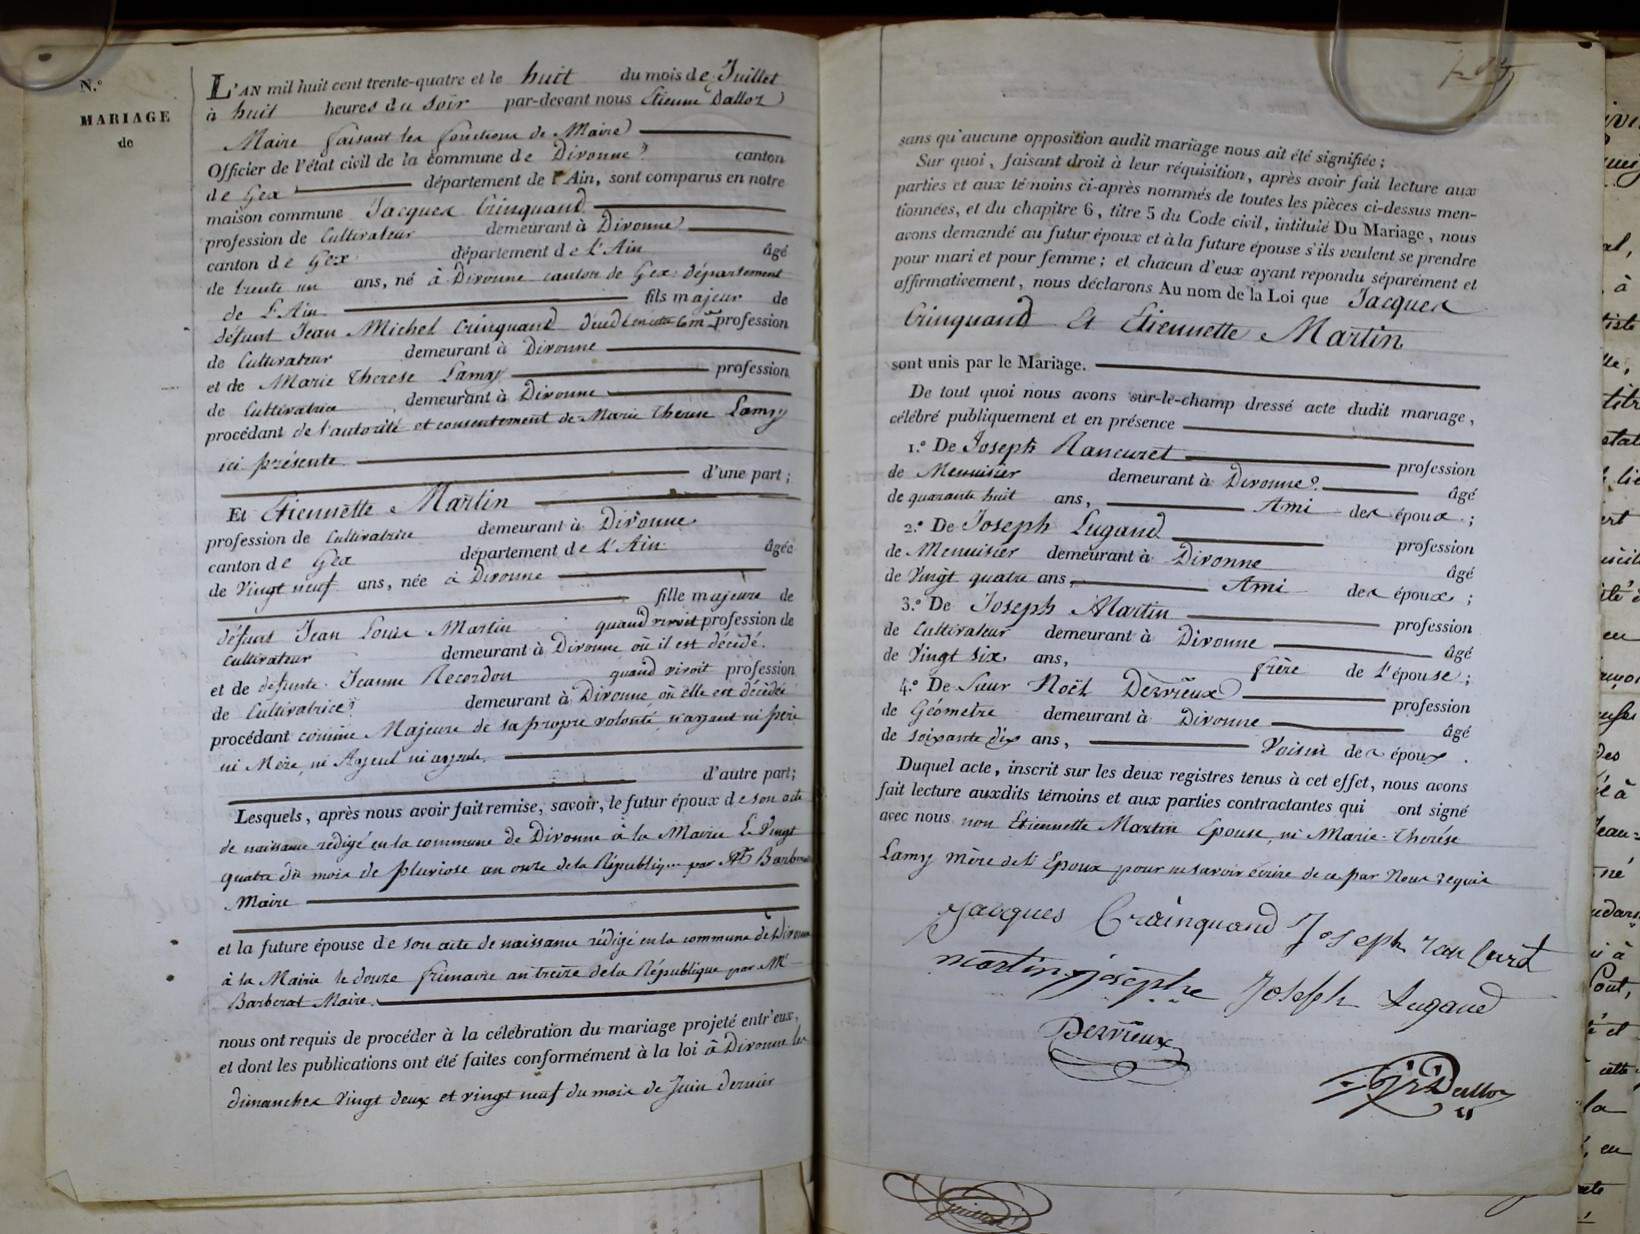 N.°
MARIAGE
de
L'AN mil huit cent trente-quatre et le huit du mois de Juillet
à huit heures du soir par-devant nous Etienne Dalloz
Maire faisant les fonctions de Maire
Officier de l'état civil de la commune de Divonne canton
de Gex département de l'Ain, sont comparus en notre
maison commune Jacques Crinquand
profession de Cultivateur demeurant à Divonne
canton de Gex département de L'Ain âgé
de trente un ans, né à Divonne canton de Gex département
de L'Ain fils majeur de
défunt Jean Michel Crinquand profession
de Cultivateur demeurant à Divonne
et de Marie Therese Lamy profession
de Cultivatrice demeurant à Divonne
procédant de l'autorité et consentement de Marie Therese Lamy
ici présente
d'une part;
Et Etiennette Martin
profession de Cultivatrice demeurant à Divonne
canton de Gex département de L'Ain âgée
de Vingt neuf ans, née à Divonne
fille majeure de
défunt Jean Louis Martin quand vivoit profession de
Cultivateur demeurant à Divonne où il est décédé.
et de defunte Jeanne Recordon quand vivoit profession
de Cultivatrice demeurant à Divonne où elle est décédée
procédant comme Majeure de sa propre volonté n'ayant ni père
ni Mère, ni Ayeul ni ayeule.
d'autre part;
Lesquels, après nous avoir fait remise, savoir, le futur époux de son acte
de naissance rédigé en la commune de Divonne à la Mairie Le Vingt
quatre du mois de pluviose an onze de la République par Mr Barberat
Maire
et la future épouse de son acte de naissance rédigé en la commune de Divonne
à la Mairie le douze frimaire an treize de la République par Mr
Barberat Maire.
nous ont requis de procéder à la célébration du mariage projeté entr'eux,
et dont les publications ont été faites conformément à la loi à Divonne les
dimanches Vingt deux et vingt neuf du mois de Juin dernier
sans qu'aucune opposition audit mariage nous ait été signifiée;
Sur quoi, faisant droit à leur réquisition, après avoir fait lecture aux
parties et aux témoins ci-après nommés de toutes les pièces ci-dessus men-
tionnées, et du chapitre 6, titre 5 du Code civil, intitulé Du Mariage, nous
avons demandé au futur époux et à la future épouse s'ils veulent se prendre
pour mari et pour femme; et chacun d'eux ayant repondu séparément et
affirmativement, nous déclarons Au nom de la Loi que Jacques
Crinquand Et Etiennette Martin
sont unis par le Mariage.
De tout quoi nous avons sur-le-champ dressé acte dudit mariage,
célébré publiquement et en présence
1.° De Joseph Rancuret profession
de Menuisier demeurant à Divonne âgé
de quarante huit ans, Ami des époux;
2.° De Joseph Lugand profession
de Menuisier demeurant à Divonne âgé
de Vingt quatre ans, Ami des époux;
3.° De Joseph Martin profession
de Cultivateur demeurant à Divonne âgé
de Vingt six ans, frère de L'épouse;
4.° De Sieur Noël Dezrieux profession
de Géometre demeurant à Divonne âgé
de soixante dix ans, Voisin des époux.
Duquel acte, inscrit sur les deux registres tenus à cet effet, nous avons
fait lecture auxdits témoins et aux parties contractantes qui ont signé
avec nous non Etiennette Martin Epouse, ni Marie-Thérése
Lamy mère de l'Epoux pour ne savoir écrire de ce par Nous requis
Jacques Crainquand Joseph rancuret
martin josephe Joseph Lugand
Dezrieux
Dalloz